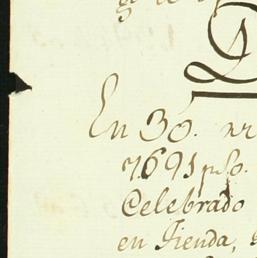 En 30. nr
7691 pso.
Celebrado
en Tienda,